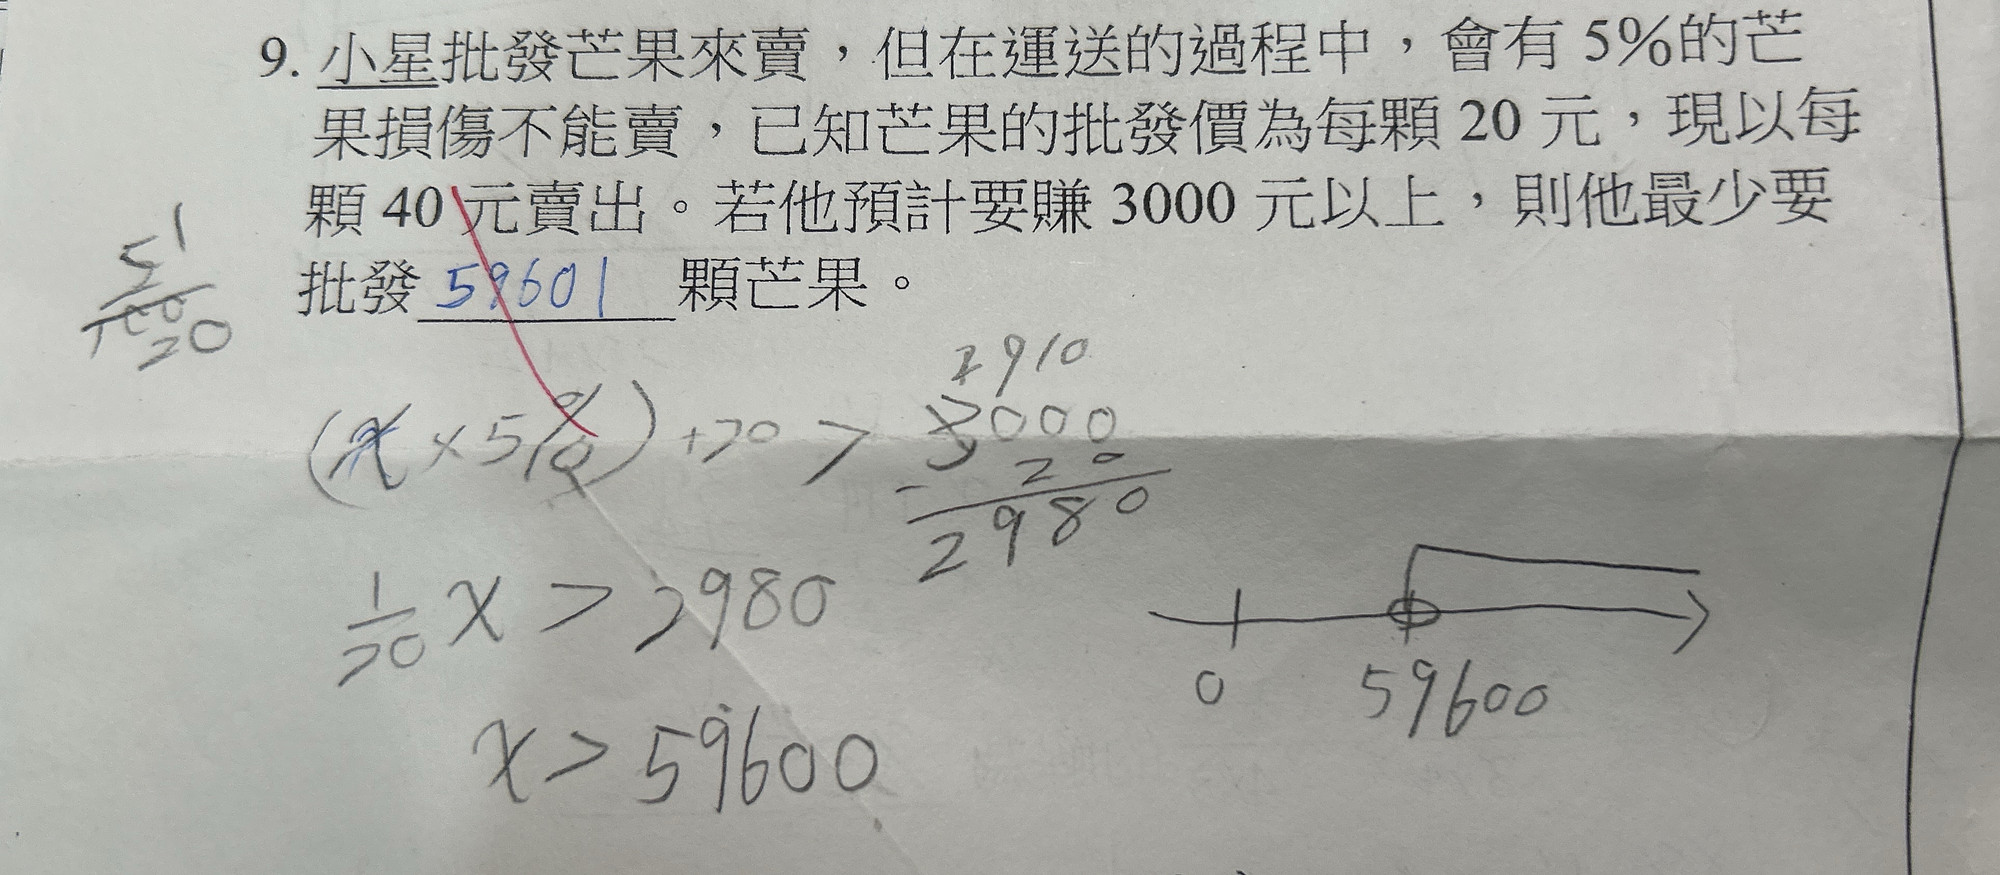 9. 小星批發芒果來賣，但在運送的過程中，會有 5%的芒
果損傷不能賣，已知芒果的批發價為每顆 20 元，現以每
顆 40 元賣出。若他預計要賺 3000 元以上，則他最少要
批發 59601 顆芒果。
5 1
100 20
2910
(x × 5%) +20 > 3000
- 20
2980
1/20 x > 2980
0 59600
x > 59600